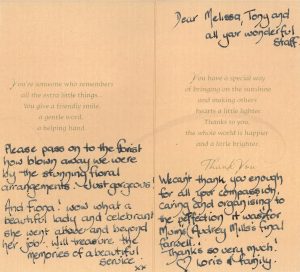 You're someone who remembers
all the extra little things...
You give a friendly smile,
a gentle word,
a helping hand.
Please pass on to the florist
how blown away we were
by the stunning floral
arrangements. Just gorgeous!
And Fiona! wow what a
beautiful lady and celebrant
she went above and beyond
her job. Will treasure the
memories of a beautiful
service. xx
Dear Melissa, Tony and
all your wonderful
staff.
You have a special way
of bringing on the sunshine
and making others
hearts a little lighter.
Thanks to you,
the whole world is happier
and a little brighter.
Thank You
We cant thank you enough
for all your compassion,
caring and organising to
the perfection it was for
Mums Audrey Mills final
farwell.
Thanks so very much!
Loris & family.